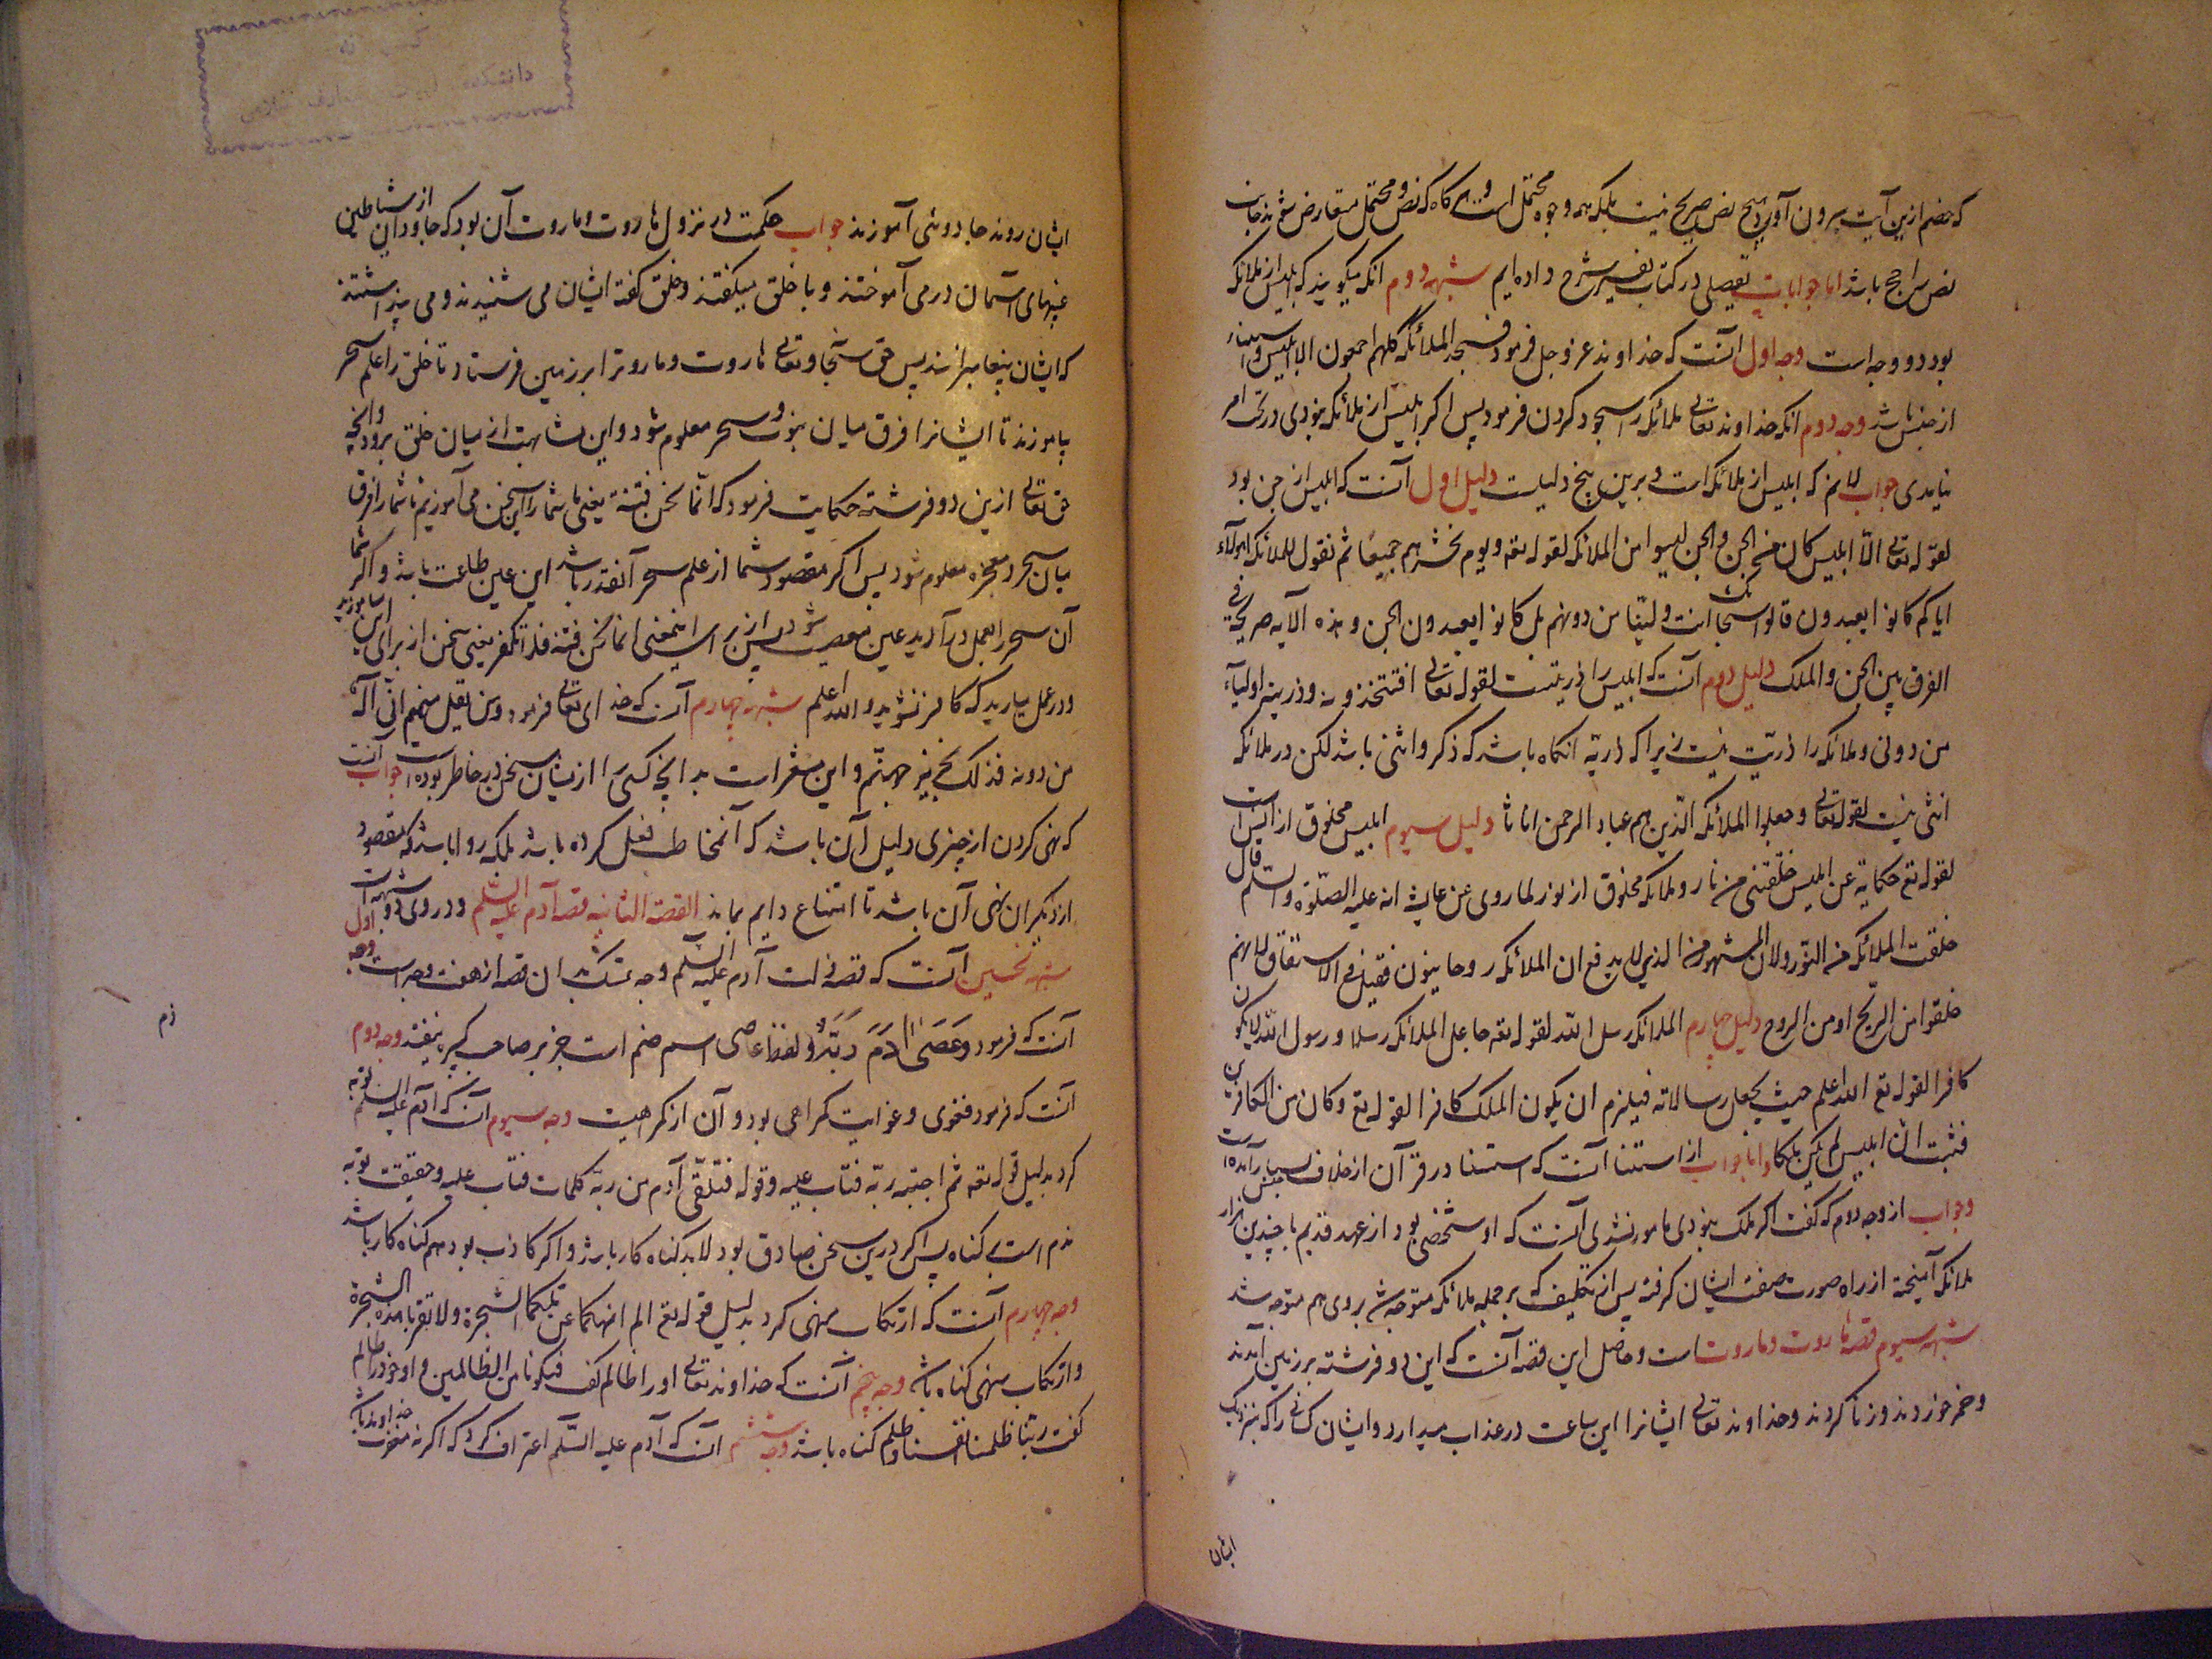 که خصم ازین آیت بیرون آورد هیچ نص صریح نیست بلکه همه وجوه محتمل است و هر گاه که نص و محتمل متعارض شوند جانب
نص راجح باشد اما جوابات تفصیلی در کتاب تفسیر شرح داده ایم شبهه دوم آنکه میگویند که ابلیس از ملائکه
بود دو وجه است وجه اول آنست که خداوند عز و جل فرمود فسجد الملائکة کلهم اجمعون الا ابلیس و استثناء
از جنس باشد وجه دوم آنکه خداوند تعالی ملائکه را سجود کردن فرمود پس اگر ابلیس از ملائکه نبودی در تحت امر
نیامدی جواب لانم که ابلیس از ملائکه است و برین پنج دلیلست دلیل اول آنست که ابلیس از جن بود
لقوله تعالی الا ابلیس کان من الجن و الجن لیسوا من الملائکه لقوله تعه و یوم نحشرهم جمیعا ثم نقول للملائکه اهولآء
ایاکم کانوا یعبدون قالوا سبحانک انت ولینا من دونهم بل کانوا یعبدون الجن و هذه الآیه صریحة فی
الفرق بین الجن و الملک دلیل دوم آنست که ابلیس را ذریتست لقوله تعالی افتتخذونه و ذریته اولیآء
من دونی و ملائکه را ذریت نیست زیرا که ذریة آنگاه باشد که ذکر و انثی باشد لکن در ملائکه
انثی نیست لقوله تعالی و جعلوا الملائکه الذین هم عباد الرحمن اناثا دلیل سیوم ابلیس مخلوق از آتش است
لقوله تع حکایة عن ابلیس خلقتنی من نار و ملائکه مخلوق از نور لما روی عن عایشه انه علیه الصلوة و السلم قال
خلقت الملائکه من النور و لان المشهور الذی لا یدفع ان الملائکه روحانیون فقیل فی الاشتقاق لانهم
خلقوا من الریح او من الروح دلیل چهارم الملائکه رسل الله لقوله تعه جاعل الملائکه رسلا و رسول الله لا یکون
کافرا لقوله تع الله اعلم حیث یجعل رسالاته فیلزم ان یکون الملک کافرا لقوله تع و کان من الکافرین
فثبت ان ابلیس لم یکن ملکا و اما جواب از استثنا آنست که استثنا در قرآن از خلاف جنس بسیار آمده است
و جواب از وجه دوم که گفت اگر ملک نبودی مامور نشدی آنست که او شخصی بود از عهد قدیم با چندین هزار
ملائکه آمیخته از راه صورت صفت ایشان گرفته پس از تکلیف که بر جمله ملائکه متوجه شد بر وی هم متوجه شد
شبهه سیوم قصه هاروت و ماروت است و حاصل این قصه آنست که این دو فرشته بر زمین آمدند
و خمر خوردند و زنا کردند و خداوند تعالی ایشانرا این ساعت در عذاب میدارد و ایشان کسانی را که بنزدیک
ایشان
ایشان روند جادوئی آموزند جواب حکمت در نزول هاروت و ماروت آن بود که جادوان از شیاطین
غیبهای آسمان در می آموختند و با خلق میگفتند و خلق گفته ایشان می شنیدند و می پنداشتند
که ایشان پیغامبرانند پس حق سبحانه و تعالی هاروت و ماروت را بر زمین فرستاد تا خلق را علم سحر
بیاموزند تا ایشانرا فرق میان نبوت و سحر معلوم شود و این شاهبت از میان خلق برود و آنچه
حق تعالی ازین دو فرشته حکایت فرمود که انما نحن فتنة یعنی ما شما را این سخن می آموزیم تا شما را فرق
میان سحر و معجزه معلوم شود پس اگر مقصود شما از علم سحر آنقدر باشد این عین طاعت باشد و اگر شما
آن سحر را بعمل در آرید عین معصیت شود پس از برای اینمعنی انما نحن فتنة فلا تکفر یعنی سخن از برای این بیاموزید
و در عمل میارید که کافر نشوید و الله اعلم شبهه چهارم آنست که خدای تعالی فرمود و من یقل منهم انی اله
من دونه فذلک نجزیه جهنم و این مشعر است بدانچه کسی را ازیشان سخن در خاطر بوده است جواب آنست
که نهی کردن از چیزی دلیل آن باشد که آن مخاطب فعل کرده باشد بلکه روا باشد که مقصود
از دیگران نهی آن باشد تا امتناع دایم بماند القصة الثانیه قصه آدم علیه السلم و در وی دو شبهه است اول
شبهه نخستین آنست که قصه زلت آدم علیه السلم وجه تمسک بدان قصه از هفت وجه است وجه
آنست که فرمود وعصی آدم ربه و لفظ عاصی اسم ضم است جز بر صاحب کبیره نیفتد وجه دوم
آنست که فرمود فغوی و غوایت گمراهی بود و آن از گمراهیت وجه سیوم آنست که آدم علیه السلم توبه
کرد بدلیل قوله تعه ثم اجتبیه ربه فتاب علیه و قوله فتلقی آدم من ربه کلمات فتاب علیه و حقیقت توبه
ندم است بر گناه پس اگر درین سخن صادق بود لابد گناه کار باشد و اگر کاذب بود هم گناه کار باشد
وجه چهارم آنست که ارتکاب منهی کرد بدلیل قوله تع الم انهکما عن تلکما الشجرة و لا تقربا هذه الشجرة
و ارتکاب منهی گناه باشد وجه پنجم آنست که خداوند تعالی او را ظالم گفت فتکونا من الظالمین و او خود را ظالم
گفت ربنا ظلمنا انفسنا و ظلم گناه باشد وجه ششم آنست که آدم علیه السلم اعتراف کرد که اگر نه مغفرت خداوند باشد